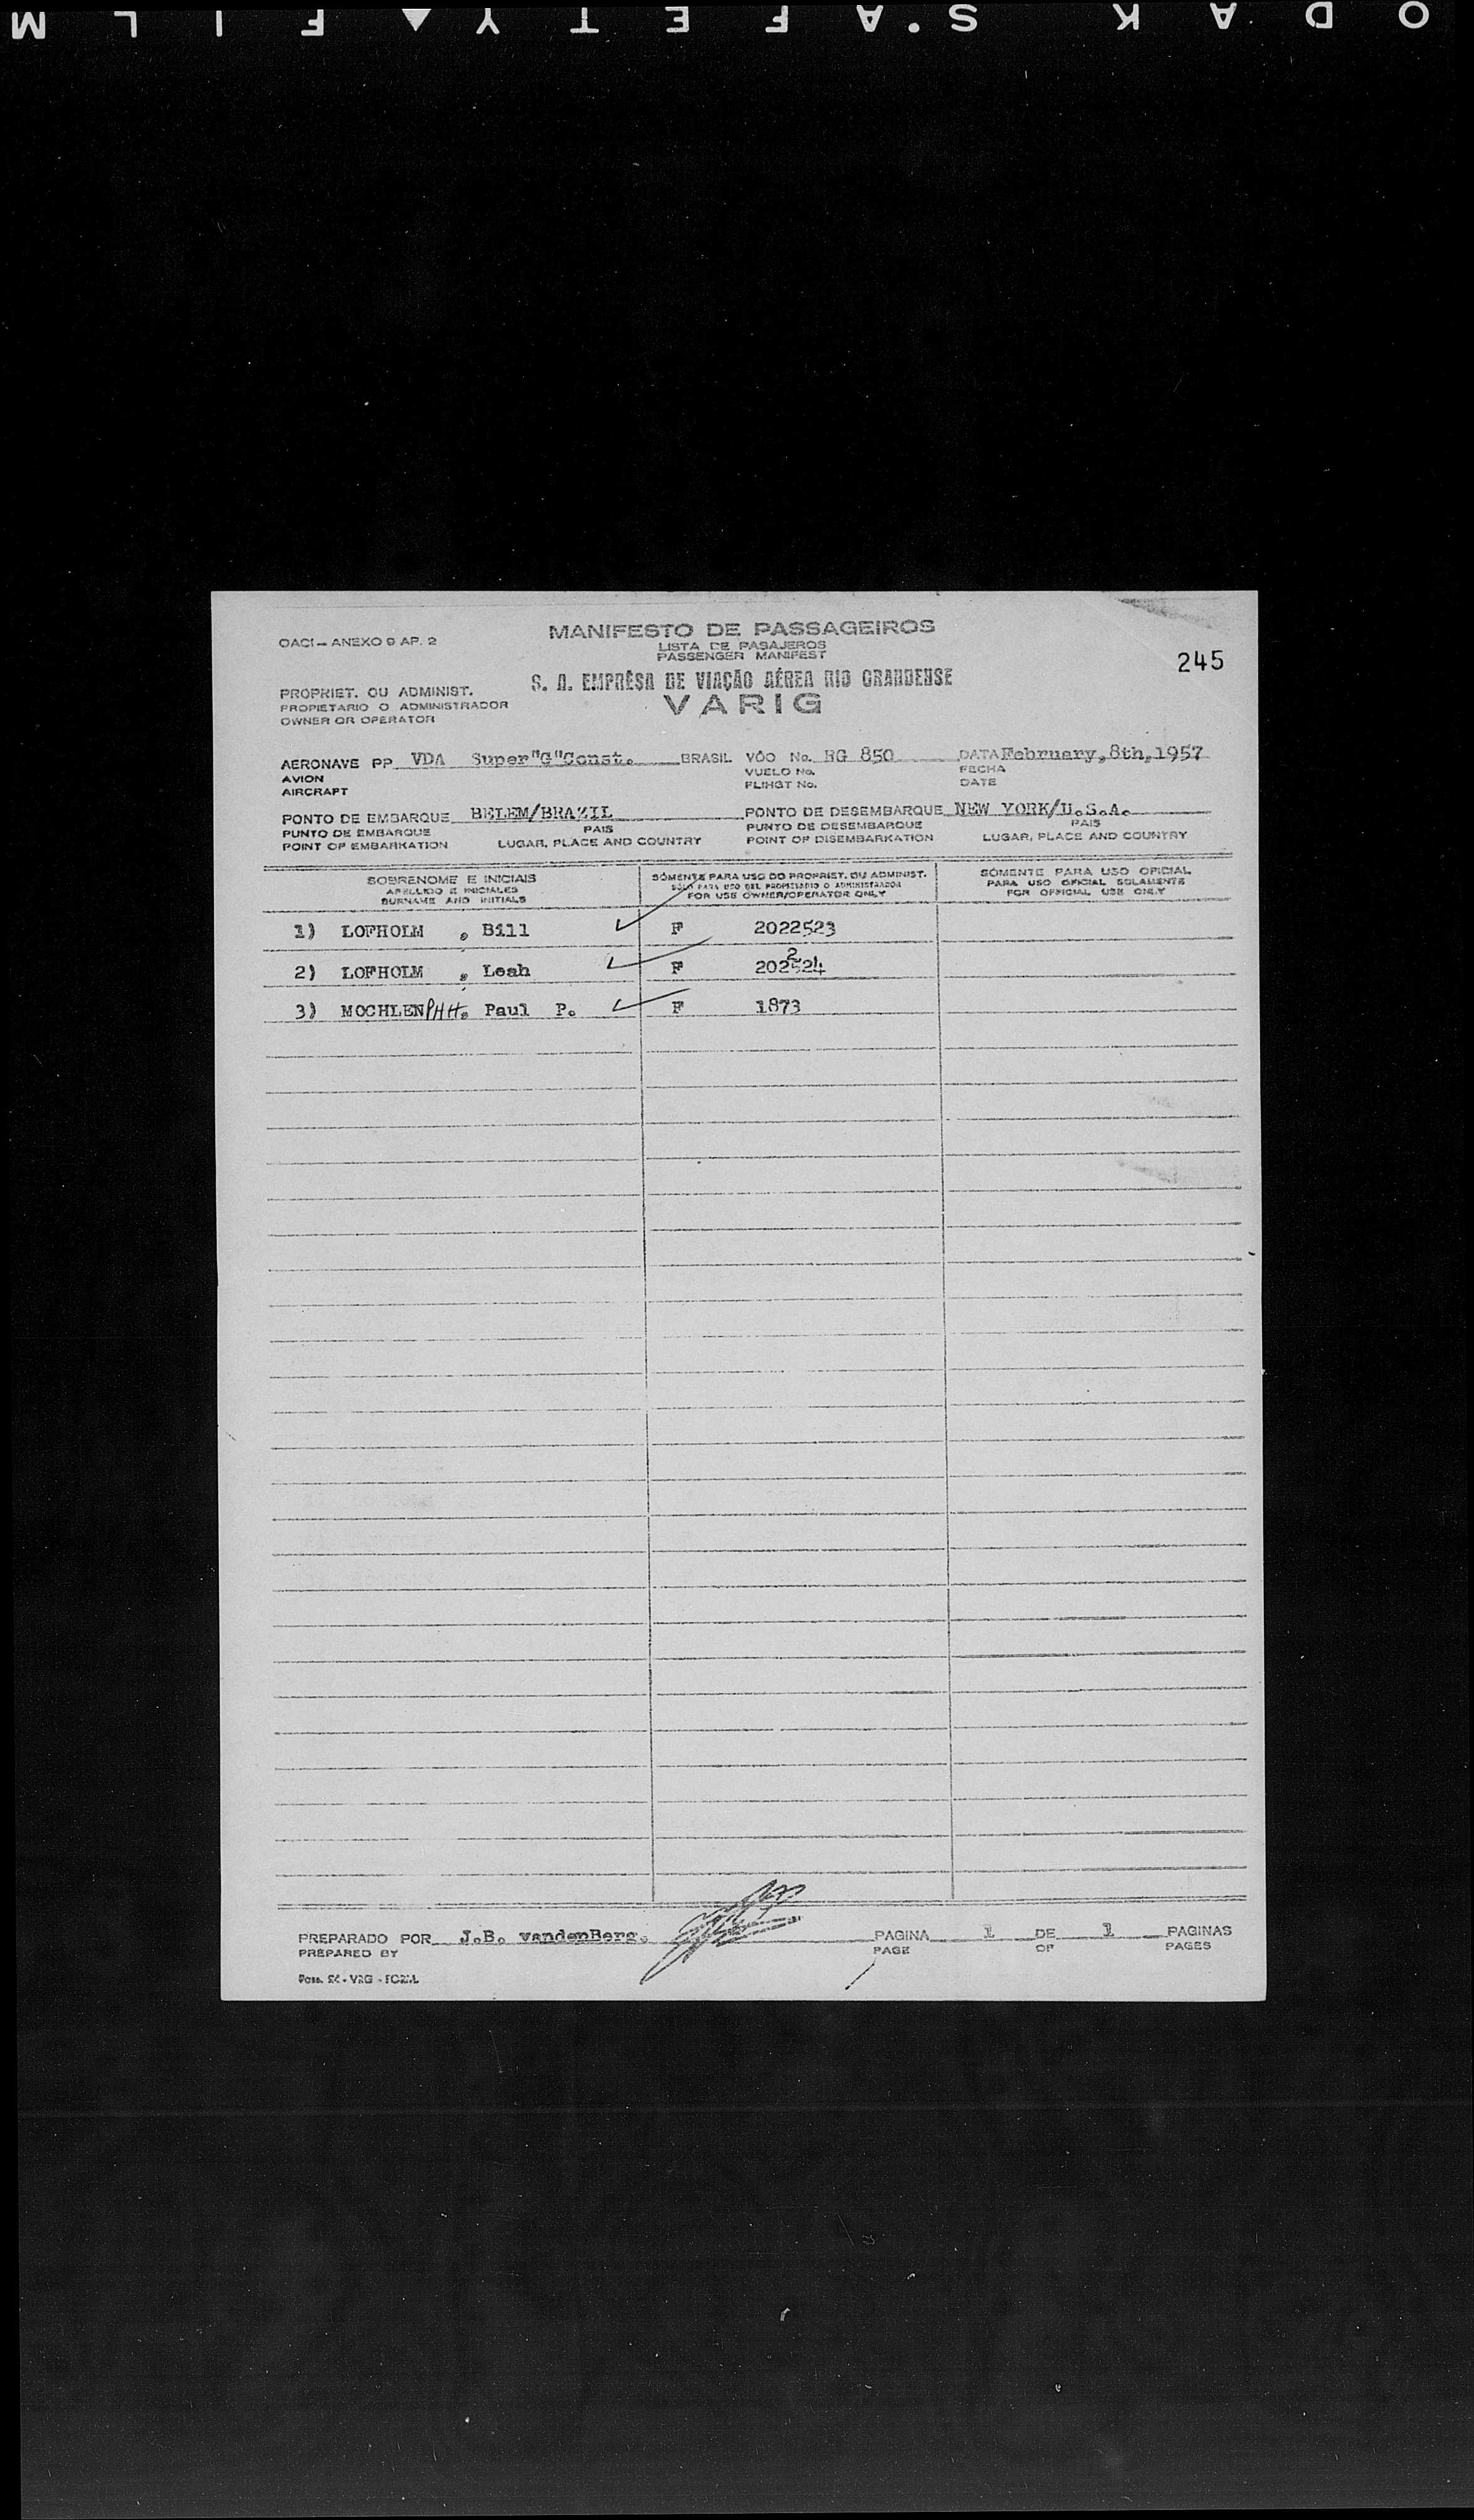 KODAK SAFETY FILM
MANIFESTO DE PASSAGEIROS
OACI - ANEXO 9 AP. 2
LISTA DE PASAJEROS
PASSENGER MANIFEST
245
S. A. EMPRÊSA DE VIAÇÃO AÉREA RIO GRANDENSE
PROPRIET. OU ADMINIST.
PROPIETARIO O ADMINISTRADOR
VARIG
OWNER OR OPERATOR
AERONAVE PP VDA Super"G"Const. BRASIL VÔO No. RG 850 DATA February, 8th, 1957
AVION VUELO No. FECHA
AIRCRAFT FLIHGT No. DATE
PONTO DE EMBARQUE BELEM/BRAZIL PONTO DE DESEMBARQUE NEW YORK/U.S.A.
PUNTO DE EMBARQUE PAIS PUNTO DE DESEMBARQUE PAIS
POINT OF EMBARKATION LUGAR, PLACE AND COUNTRY POINT OF DISEMBARKATION LUGAR, PLACE AND COUNTRY
SOBRENOME E INICIAIS SÓMENTE PARA USO DO PROPRIET. OU ADMINIST. SÓMENTE PARA USO OFICIAL
APELLIDO E INICIALES SÓLO PARA USO DEL PROPIETARIO O ADMINISTRADOR PARA USO OFICIAL SOLAMENTE
SURNAME AND INITIALS FOR USE OWNER/OPERATOR ONLY FOR OFFICIAL USE ONLY
1) LOFHOLM , Bill F 2022523
2) LOFHOLM , Leah F 2022524
3) MOCHLENPHH, Paul P. F 1873
PREPARADO POR J.B. vandenBerg. PAGINA 1 DE 1 PAGINAS
PREPARED BY PAGE OF PAGES